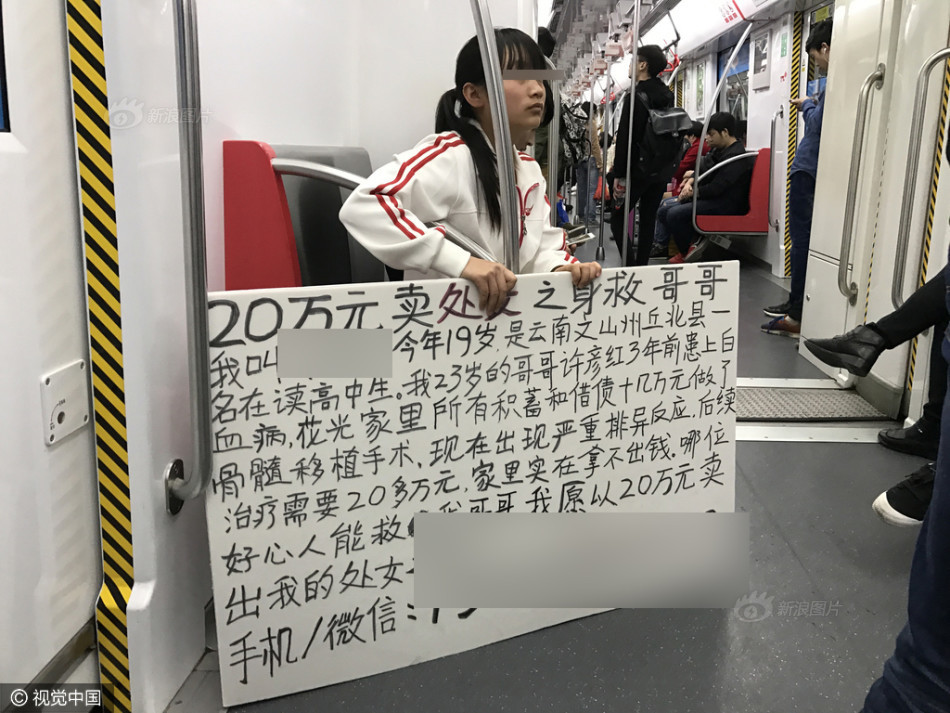 新浪图片
20万元卖处女之身救哥哥
我叫 今年19岁,是云南文山州丘北县一
名在读高中生。我23岁的哥哥许彦红3年前患上白
血病,花光家里所有积蓄和借债十几万元做了
骨髓移植手术,现在出现严重排异反应,后续
治疗需要20多万元,家里实在拿不出钱。哪位
好心人能救我哥哥我愿以20万元卖
出我的处女
手机/微信:
新浪图片
© 视觉中国